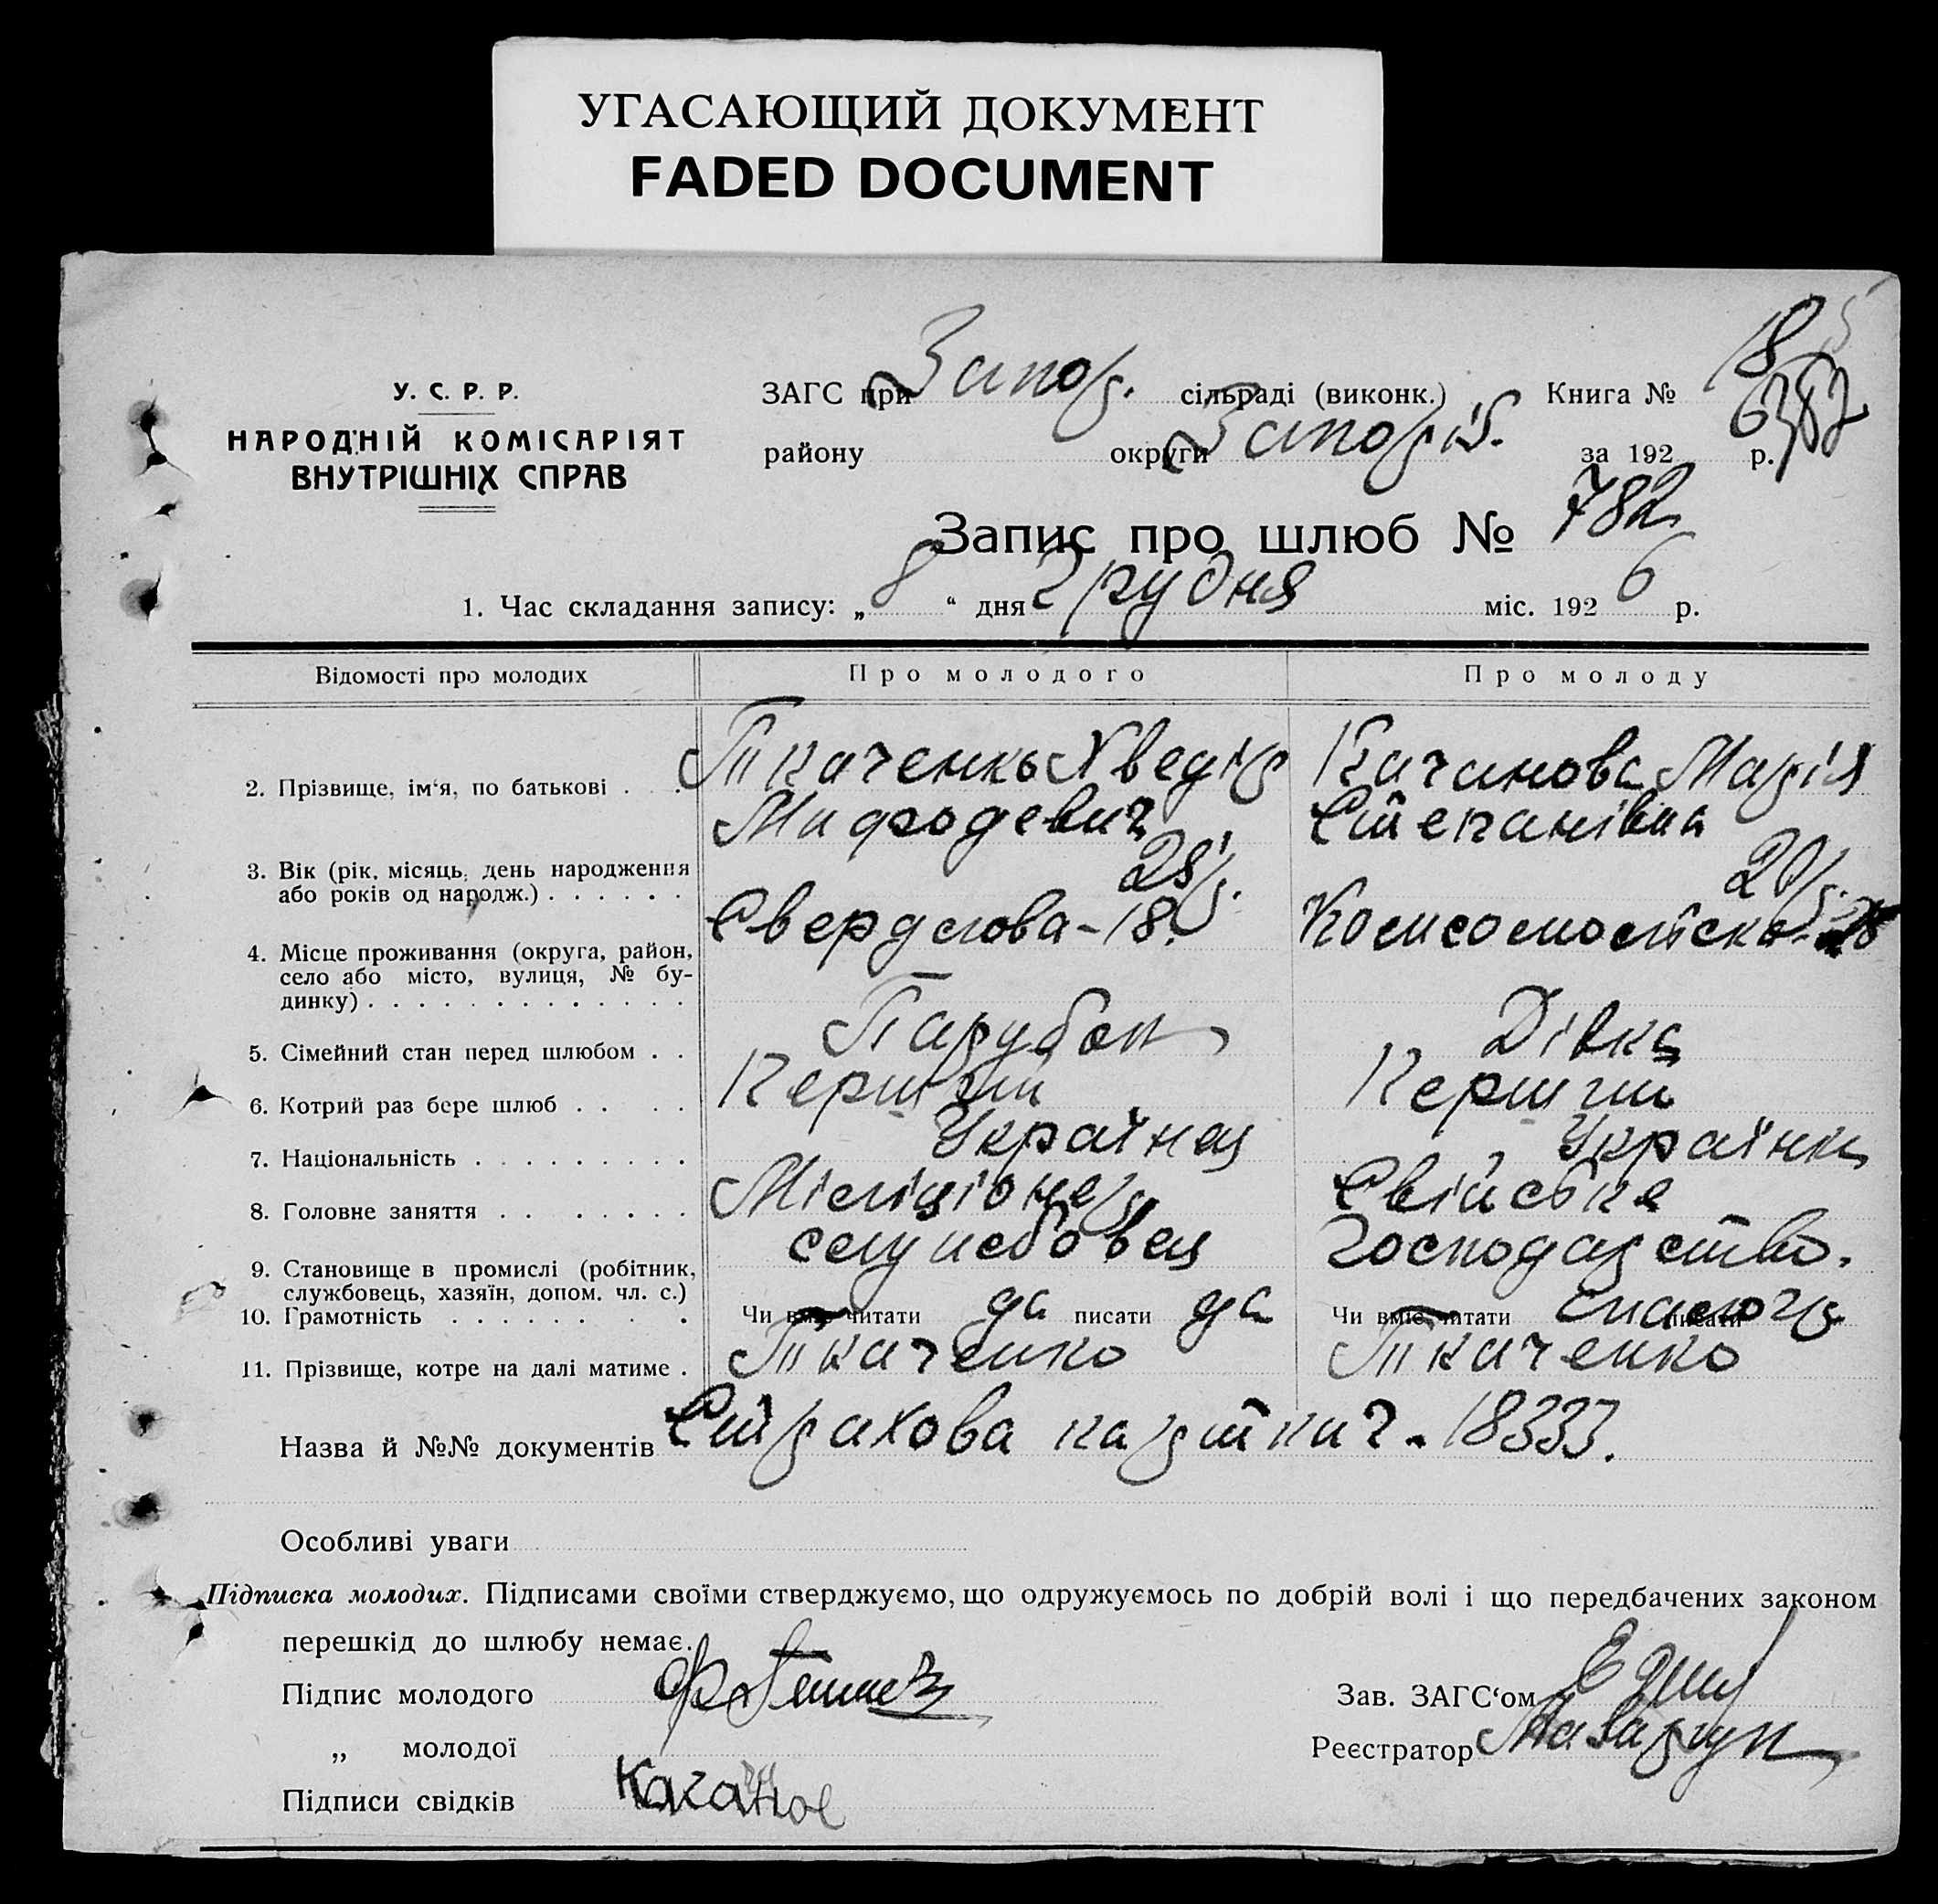 УГАСАЮЩИЙ ДОКУМЕНТ
FADED DOCUMENT
У. С. Р. Р.
НАРОДНІЙ КОМІСАРІЯТ
ВНУТРІШНІХ СПРАВ
ЗАГС при Запор. сільраді (виконк.) Книга № 18
району округи Запоріз. за 192 6 р. 382
Запис про шлюб № 782
1. Час складання запису: „ 8 “ дня Грудня міс. 192 6 р.
Відомості про молодих Про молодого Про молоду
2. Прізвище, ім‘я, по батькові . . Ткаченко Хведір Качанова Марія
Мифодевич Степанівна
3. Вік (рік, місяць, день народження 28 р. 20 р.
або років од народж.) . . . . . .
4. Місце проживання (округа, район, Свердлова - 18. Комсомольска
село або місто, вулиця, № бу-
динку) . . . . . . . . . . . . .
5. Сімейний стан перед шлюбом . . Парубок Дівка
6. Котрий раз бере шлюб . . . . Перший Перший
7. Національність . . . . . . . . . Українец Українка
8. Головне заняття . . . . . . . Міліціонер Свійське
9. Становище в промислі (робітник, служебовец Господарство.
службовець, хазяїн, допом. чл. с.)
10. Грамотність . . . . . . . . Чи вміє читати да писати да Чи вміє читати писати
11. Прізвище, котре на далі матиме . Ткаченко Ткаченко
Назва й №№ документів Страхова картка ч. 18333.
Особливі уваги
Підписка молодих. Підписами своїми стверджуємо, що одружуємось по добрій волі і що передбачених законом
перешкід до шлюбу немає.
Підпис молодого Зав. ЗАГС‘ом
„ молодої Реєстратор
Підписи свідків